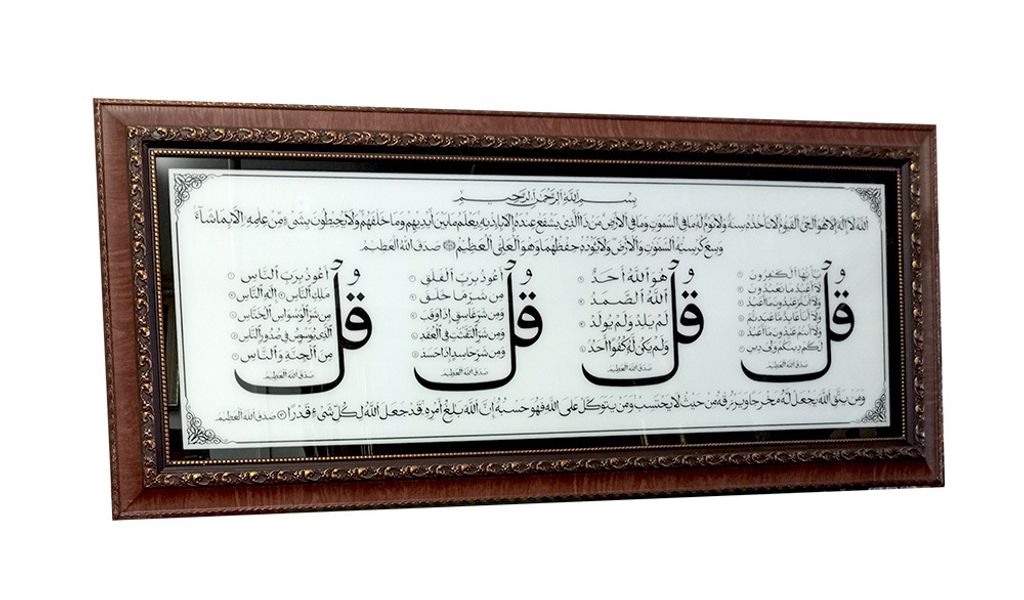 بِسْمِ اللَّهِ الرَّحْمَنِ الرَّحِيمِ
اللَّهُ لَا إِلَهَ إِلَّا هُوَ الْحَيُّ الْقَيُّومُ لَا تَأْخُذُهُ سِنَةٌ وَلَا نَوْمٌ لَهُ مَا فِي السَّمَوَاتِ وَمَا فِي الْأَرْضِ مَنْ ذَا الَّذِي يَشْفَعُ عِنْدَهُ إِلَّا بِإِذْنِهِ يَعْلَمُ مَا بَيْنَ أَيْدِيهِمْ وَمَا خَلْفَهُمْ وَلَا يُحِيطُونَ بِشَيْءٍ مِنْ عِلْمِهِ إِلَّا بِمَا شَاءَ
وَسِعَ كُرْسِيُّهُ السَّمَوَاتِ وَالْأَرْضَ وَلَا يَئُودُهُ حِفْظُهُمَا وَهُوَ الْعَلِيُّ الْعَظِيمُ صَدَقَ اللَّهُ الْعَظِيمُ
قُلْ
يَا أَيُّهَا الْكَافِرُونَ ١
لَا أَعْبُدُ مَا تَعْبُدُونَ ٢
وَلَا أَنْتُمْ عَابِدُونَ مَا أَعْبُدُ ٣
وَلَا أَنَا عَابِدٌ مَا عَبَدْتُمْ ٤
وَلَا أَنْتُمْ عَابِدُونَ مَا أَعْبُدُ ٥
لَكُمْ دِينُكُمْ وَلِيَ دِينِ ٦
صَدَقَ اللَّهُ الْعَظِيمُ
قُلْ
هُوَ اللَّهُ أَحَدٌ ١
اللَّهُ الصَّمَدُ ٢
لَمْ يَلِدْ وَلَمْ يُولَدْ ٣
وَلَمْ يَكُنْ لَهُ كُفُوًا أَحَدٌ ٤
صَدَقَ اللَّهُ الْعَظِيمُ
قُلْ
أَعُوذُ بِرَبِّ الْفَلَقِ ١
مِنْ شَرِّ مَا خَلَقَ ٢
وَمِنْ شَرِّ غَاسِقٍ إِذَا وَقَبَ ٣
وَمِنْ شَرِّ النَّفَّاثَاتِ فِي الْعُقَدِ ٤
وَمِنْ شَرِّ حَاسِدٍ إِذَا حَسَدَ ٥
صَدَقَ اللَّهُ الْعَظِيمُ
قُلْ
أَعُوذُ بِرَبِّ النَّاسِ ١
مَلِكِ النَّاسِ ٢ إِلَهِ النَّاسِ ٣
مِنْ شَرِّ الْوَسْوَاسِ الْخَنَّاسِ ٤
الَّذِي يُوَسْوِسُ فِي صُدُورِ النَّاسِ ٥
مِنَ الْجِنَّةِ وَالنَّاسِ ٦
صَدَقَ اللَّهُ الْعَظِيمُ
وَمَنْ يَتَّقِ اللَّهَ يَجْعَلْ لَهُ مَخْرَجًا وَيَرْزُقْهُ مِنْ حَيْثُ لَا يَحْتَسِبُ وَمَنْ يَتَوَكَّلْ عَلَى اللَّهِ فَهُوَ حَسْبُهُ إِنَّ اللَّهَ بَالِغُ أَمْرِهِ قَدْ جَعَلَ اللَّهُ لِكُلِّ شَيْءٍ قَدْرًا صَدَقَ اللَّهُ الْعَظِيمُ